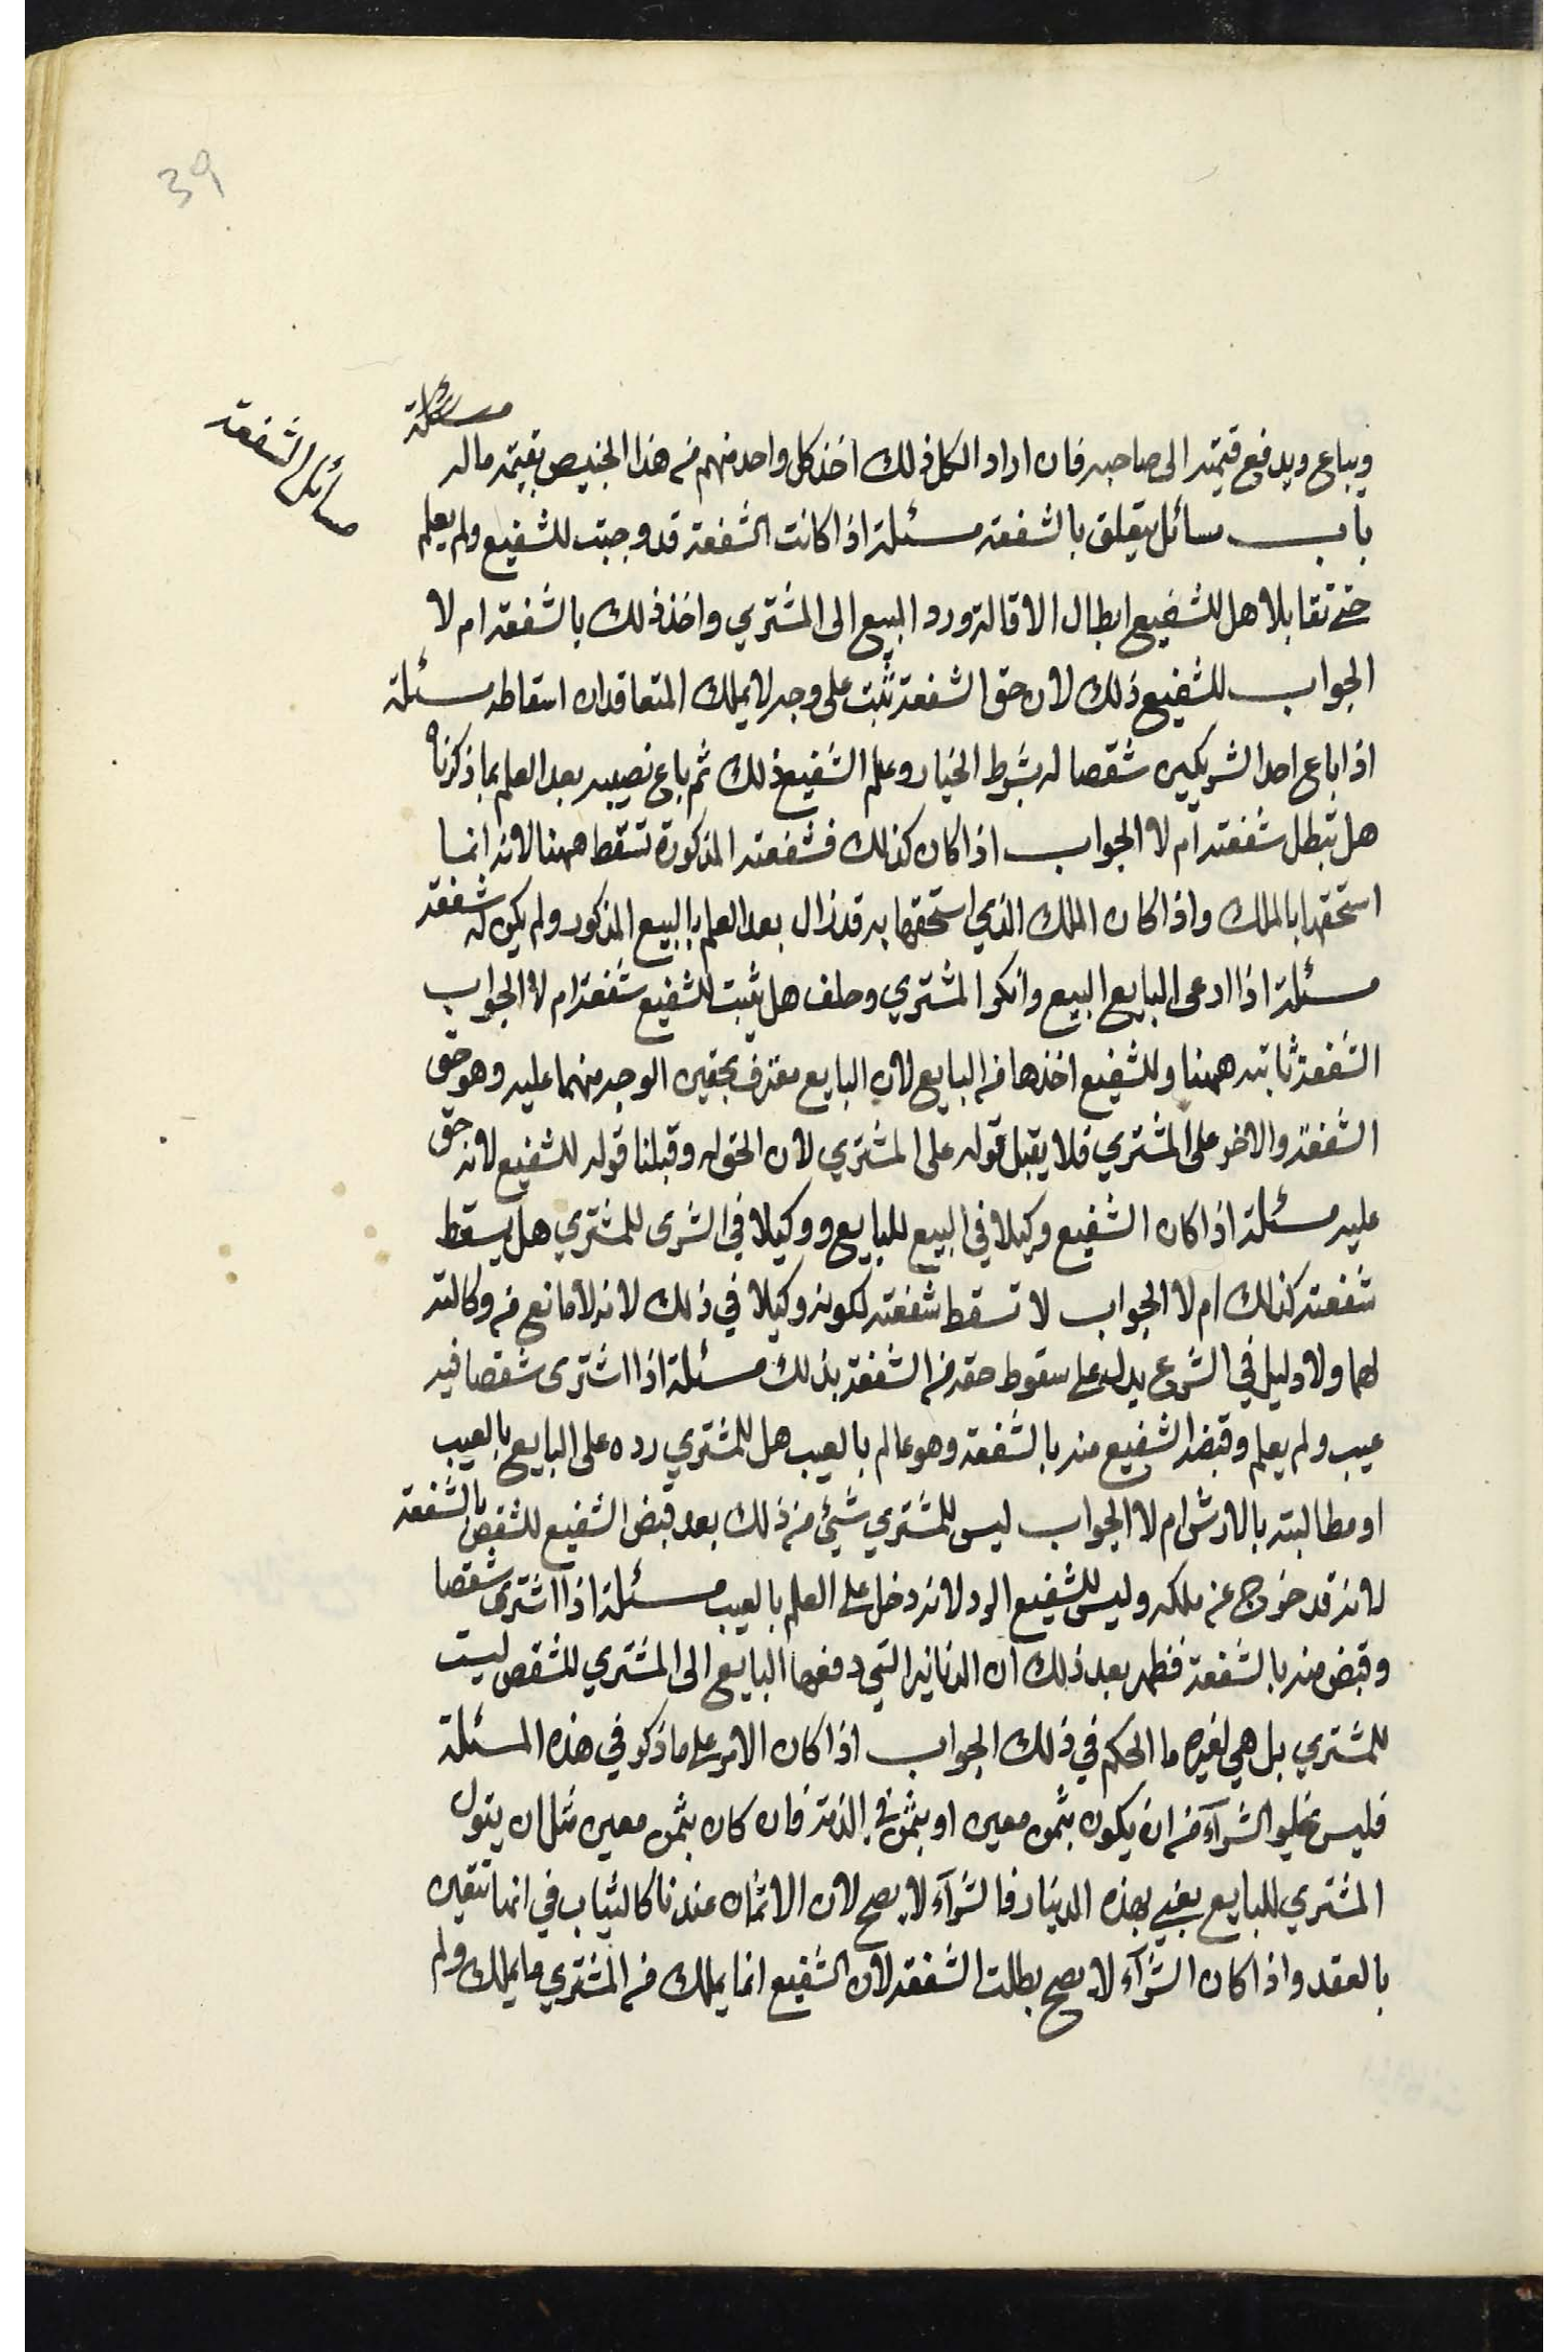 39
مسائل الشفعة
ويباع ويدفع قيمته الى صاحبه فان اراد الكل ذلك اخذ كل واحد منهم من هذا الجنيص بقيمة ماله مسئلة
باب مسائل يتعلق بالشفعة مسئلة اذا كانت الشفعة قد وجبت للشفيع ولم يعلم
حتى تقابلا هل للشفيع ابطال الاقالة ورد المبيع الى المشتري واخذ ذلك بالشفعة ام لا
الجواب للشفيع ذلك لان حق الشفعة تثبت على وجه لا يملك المتعاقدان اسقاطه مسئلة
اذا باع احد الشريكين شقصا له بشرط الخيار وعلم الشفيع ذلك ثم باع نصيبه بعد العلم بما ذكرناه
هل تبطل شفعته ام لا الجواب اذا كان كذلك فشفعته المذكورة تسقط ههنا لانه انما
استحقها بالملك واذا كان الملك الذي استحقها به قد زال بعد العلم بالبيع المذكور ولم يكن له شفعة
مسئلة اذا ادعى البايع البيع وانكر المشتري وحلف هل يثبت للشفيع شفعة ام لا الجواب
الشفعة ثابتة ههنا وللشفيع اخذها من البايع لان البايع مقترف بحقين الوجه منهما عليه وهو حق
الشفعة والاخر على المشتري فلا يقبل قوله على المشتري لان الحق له وقبلنا قوله للشفيع لانه حق
عليه مسئلة اذا كان الشفيع وكيلا في البيع للبايع ووكيلا في الشرى للمشتري هل يسقط
شفعته كذلك ام لا الجواب لا تسقط شفعته لكونه وكيلا في ذلك لانه لا مانع من وكالته
لهما ولا دليل في الشرع يدل على سقوط حقه من الشفعة بذلك مسئلة اذا اشترى شقصا فيه
عيب ولم يعلم وقبضه الشفيع منه بالشفعة وهو عالم بالعيب هل للمشتري رده على البايع بالعيب
او مطالبته بالارش ام لا الجواب ليس للمشتري شيئ من ذلك بعد قبض الشفيع للشقص بالشفعة
لانه قد خرج عن ملكه وليس للشفيع الرد لانه دخل على العلم بالعيب مسئلة اذا اشترى شقصا
وقبض منه بالشفعة فظهر بعد ذلك ان الدنانير التي دفعها البايع الى المشتري للشقص ليست
للمشتري بل هي لغيره ما الحكم في ذلك الجواب اذا كان الامر على ما ذكر في هذه المسئلة
فليس يخلو الشرآء من ان يكون بثمن معين او بثمن في الذمة فان كان بثمن معين مثل ان يقول
المشتري للبايع بعني بهذه الدينار فالشرآء لا يصح لان الاثمان عندنا كالثياب في انها تتعين
بالعقد واذا كان الشرآء لا يصح بطلت الشفعة لان الشفيع انما يملك من المشتري ما يملك ولم